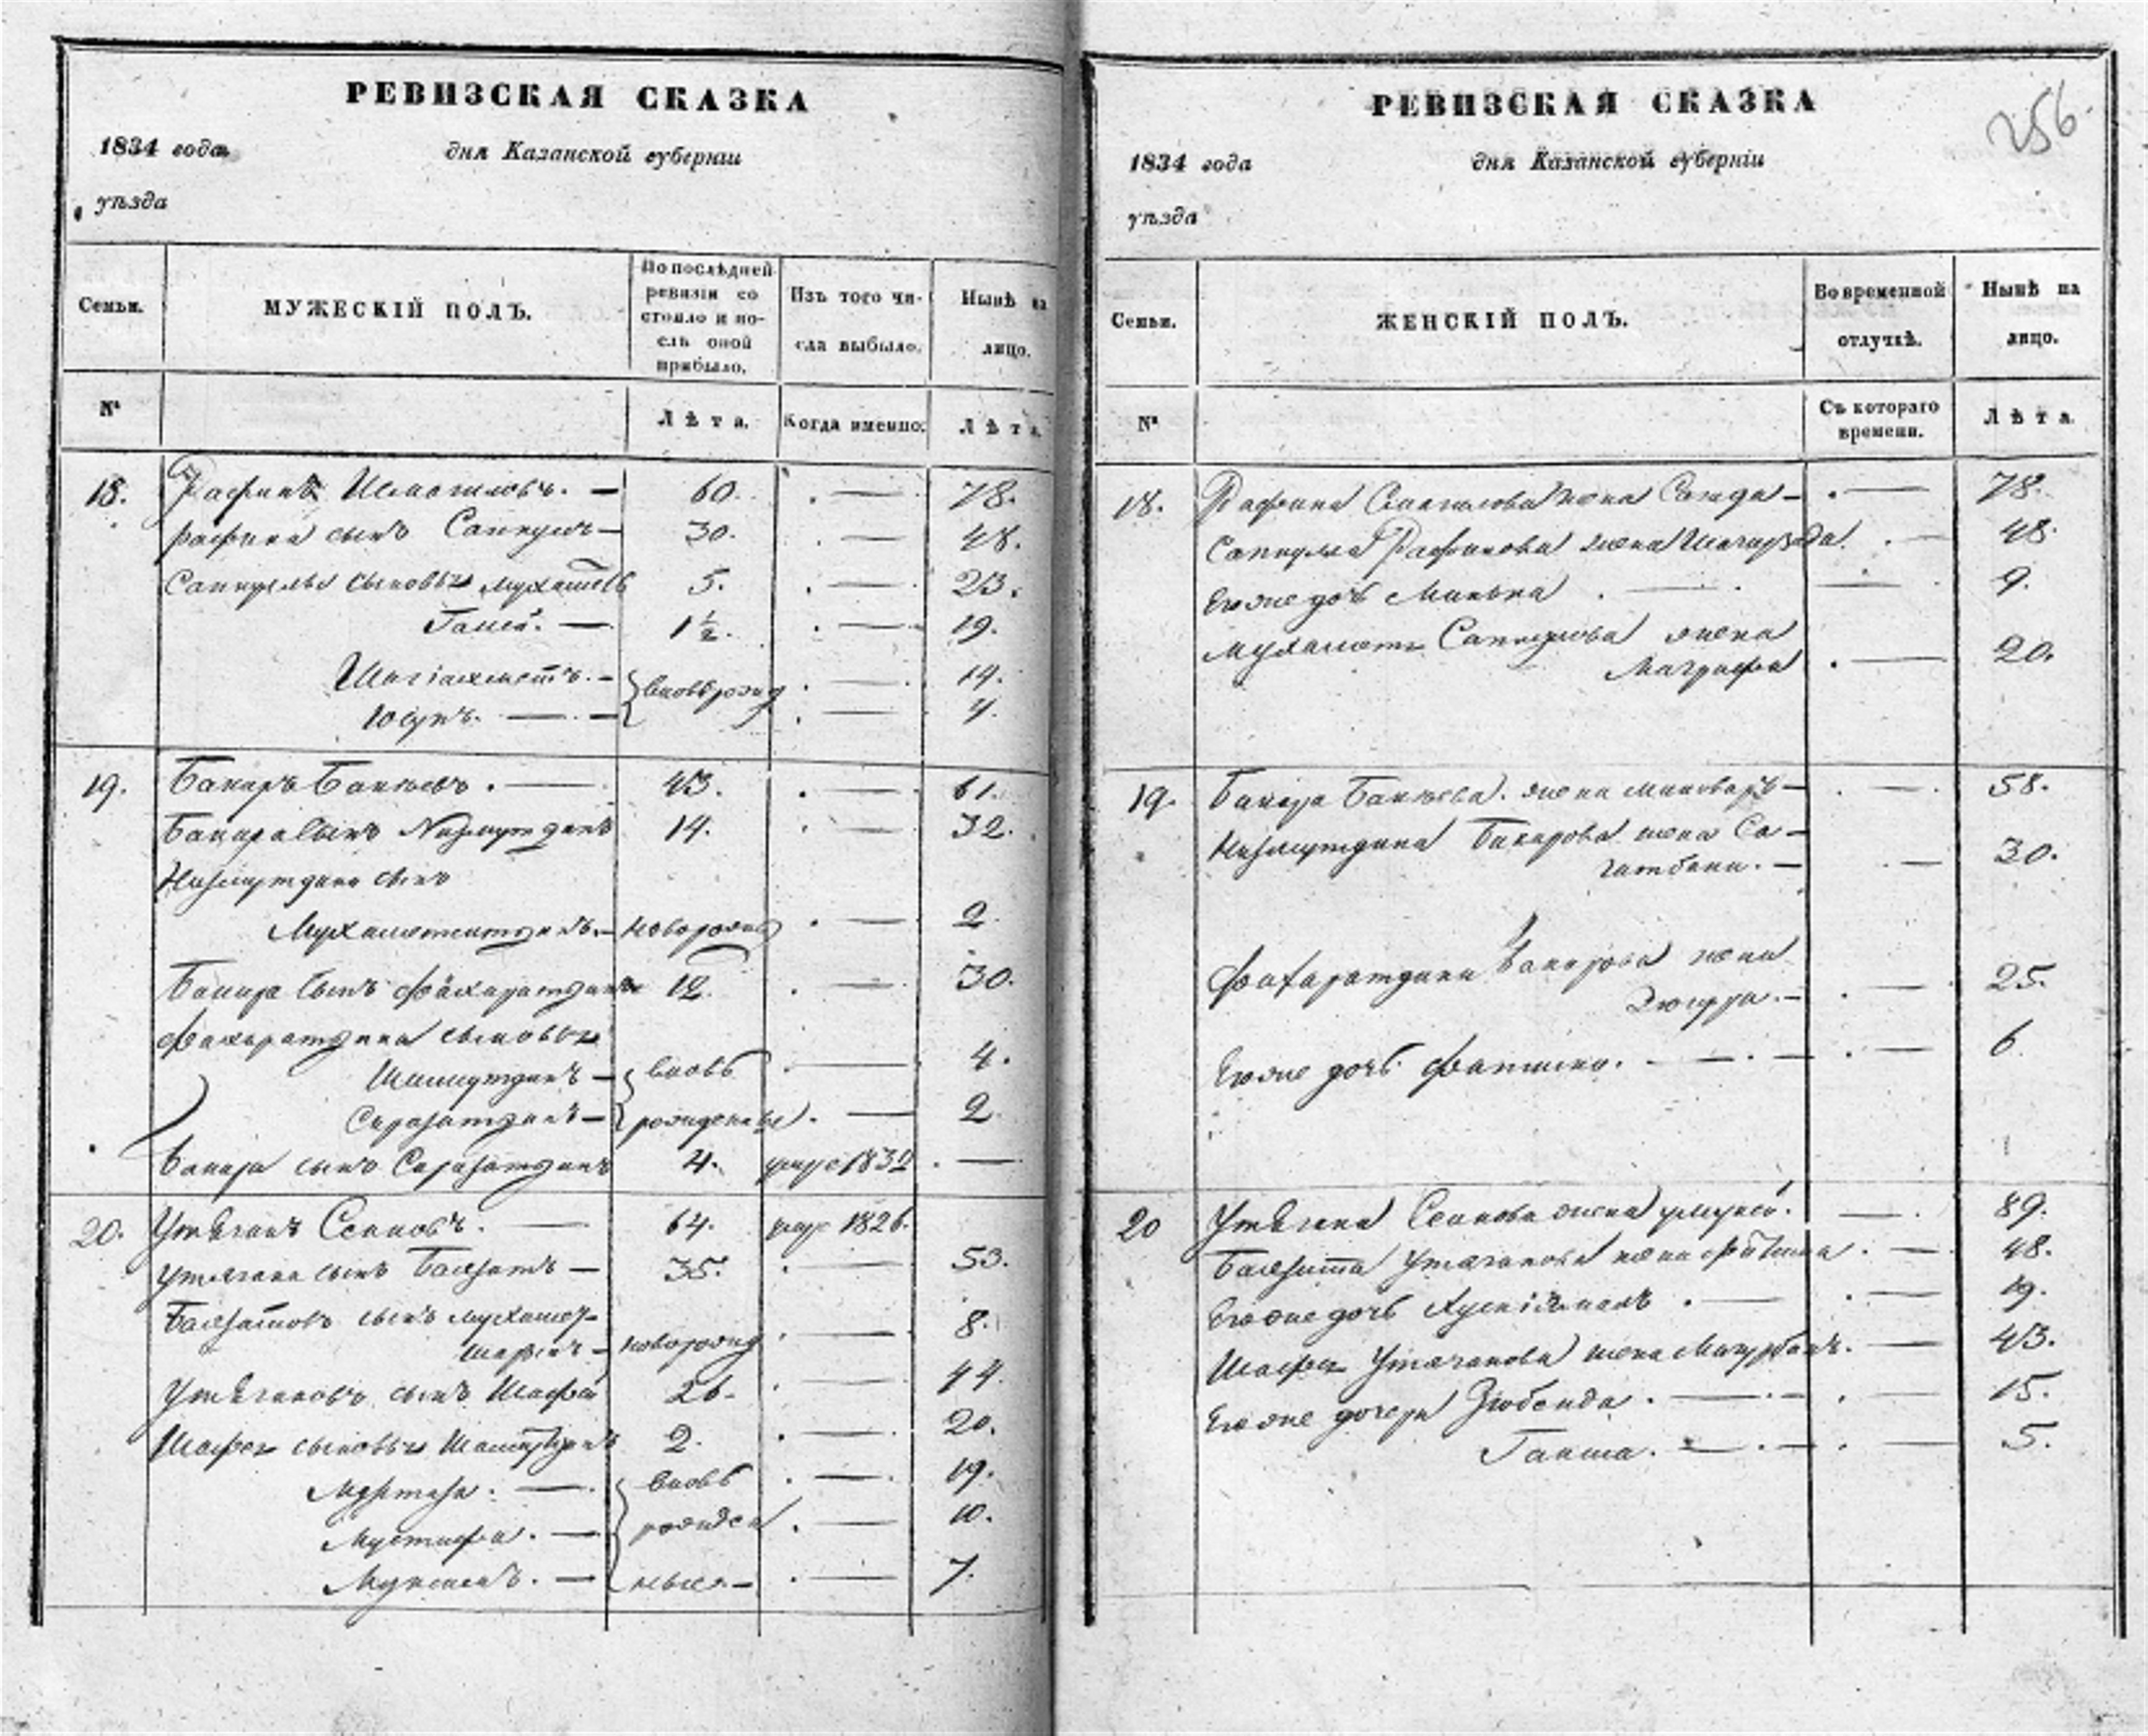 РЕВИЗСКАЯ СКАЗКА
1834 года дня Казанской губерніи
уѣзда
Семьи. МУЖЕСКІЙ ПОЛЪ. По послѣдней ревизіи состояло и послѣ оной прибыло. Изъ того числа выбыло. Нынѣ на лицо.
№ Лѣта. Когда именно. Лѣта.
18. Рафикъ Исмагиловъ. — 60. . — 78.
Рафика сынъ Сапкулъ — 30. . — 48.
Сапкула сыновья Мухаметъ 5. . — 23.
Ганей. — 1½. . — 19.
Шагіахметъ. — вновьрожд . — 14.
Юсупъ. — . —
19. Бакиръ Бакѣевъ. — 43. . — 61.
Бакира сынъ Низмутдинъ 14. . — 32.
Низмутдина сынъ
Мухаметзитдинъ. — новорожд . — 2
Бакира сынъ Фахаратдинъ 12. . — 30.
Фахаратдина сыновья
— вновь . — 4.
Сиразатдинъ — рожденные . — 2
Бакира сынъ Сиразатдинъ 4. умре 1832 . —
20. Утѣганъ Сеиновъ. — 64. умр 1826.
Утягана сынъ Баязитъ — 35. . — 53.
Баязитовъ сынъ Мухамед-
шарипъ — новорожд . — 8.
Утѣгановъ сынъ Шафей 26. . — 44.
Шафея сыновья Шамсутдинъ 2. . — 20.
Муртаза. — вновь . — 19.
Мустафа. — рожден . — 10.
Мукминъ. — ные — . — 7.
РЕВИЗСКАЯ СКАЗКА
256.
1834 года дня Казанской губерніи
уѣзда
Семьи. ЖЕНСКІЙ ПОЛЪ. Во временной отлучкѣ. Нынѣ на лицо.
№ Съ котораго времени. Лѣта.
18. Рафика Смагилова жена Саида — . — 78.
Сапкула Рафикова жена . — 48.
Его же дочь — 9.
Мухаметъ Сапкулова жена
Маграфа . — 20.
19. Бакира Бакѣева. жена Миноваръ — . — 58.
Низмутдина Бакирова жена Са-
гитбану. — . — 30.
Фахаратдина Бакирова жена
Зюгура. — . — 25.
Его же дочь Фатима. — . — 6.
20 Утѣгана Сеинова жена — 89.
Баязита Утяганова жена Фатима . — 48.
Его же дочь . — 19.
Шафея Утяганова жена . — 43.
Его же дочери Зюбейда. — . — 15.
Гайша. — . — 5.